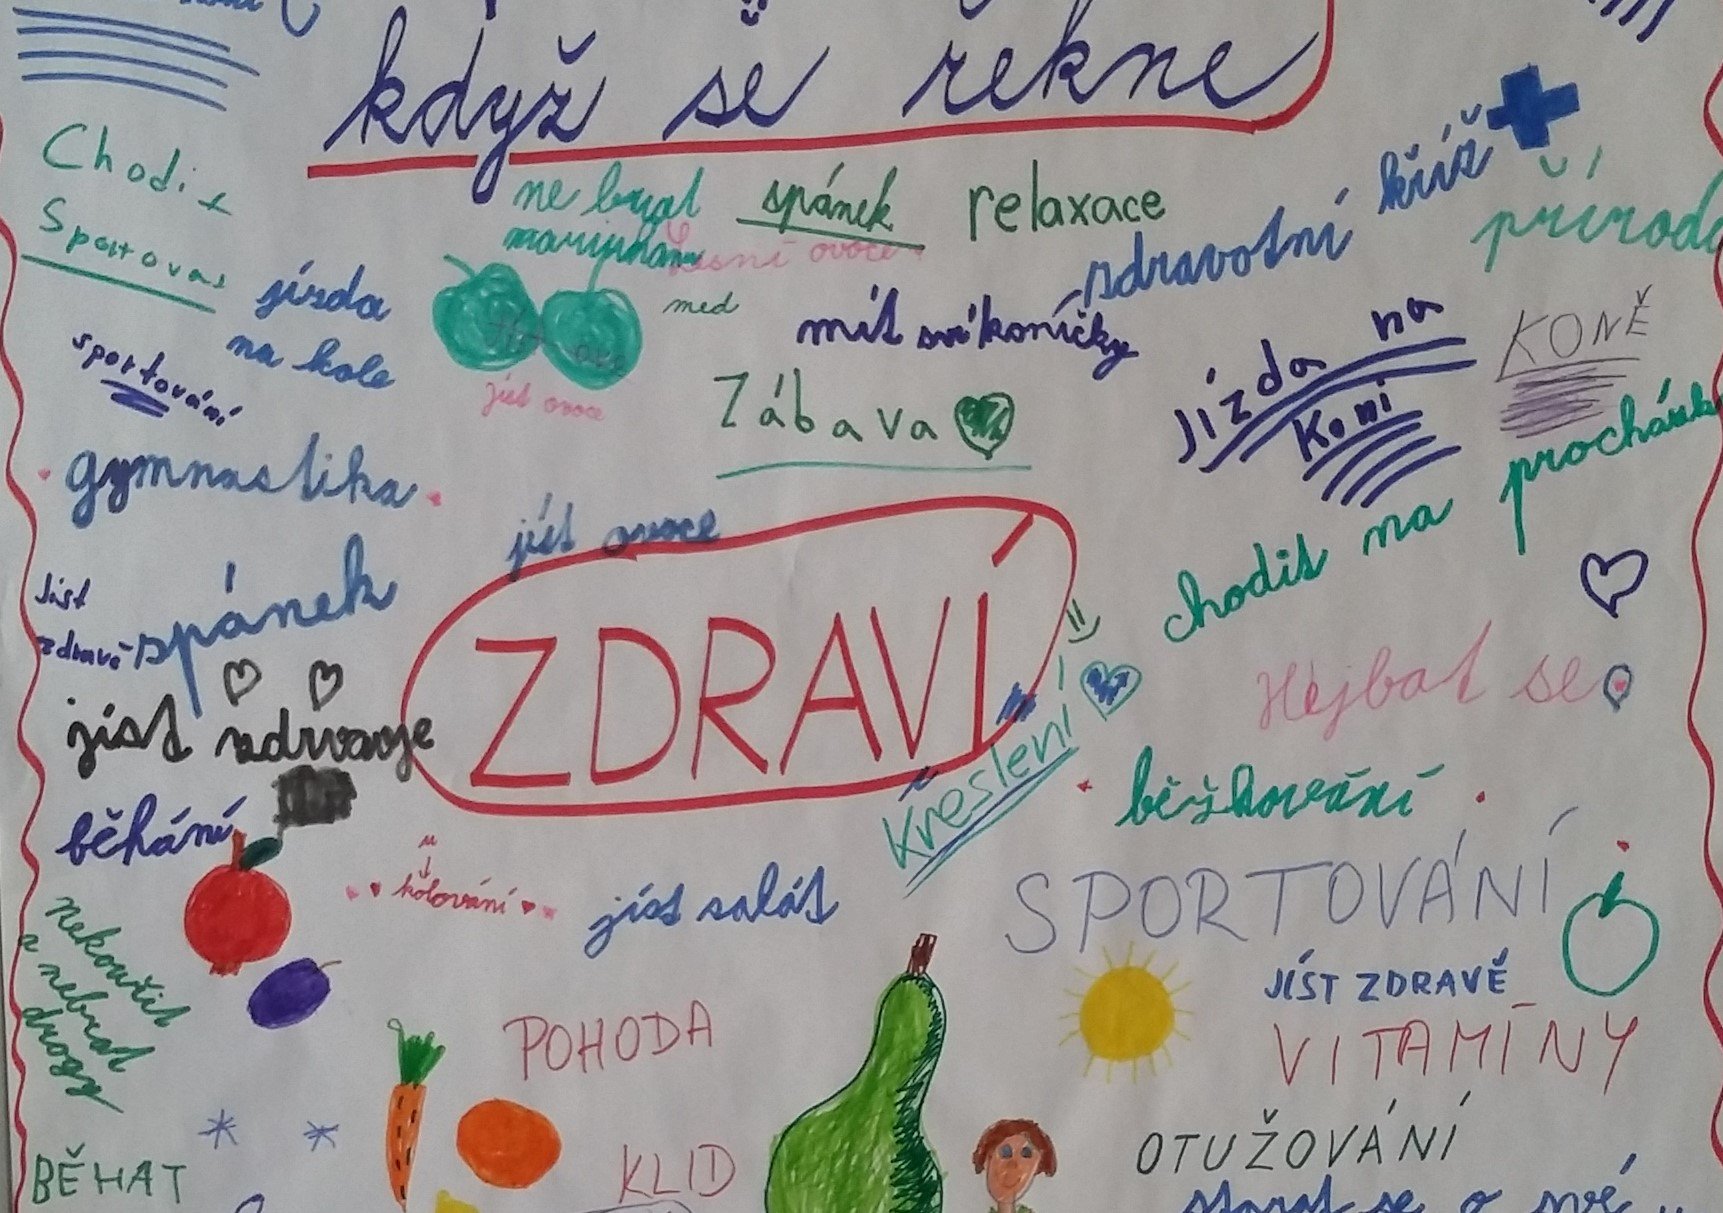 když se řekne
Chodit
Sportovat
ne brat
marihuanu
spánek
relaxace
zdravotní kříž
příroda
lesní ovoce
med
jízda
na kole
mít své koníčky
Jízda na
Koni
KONĚ
sportování
jíst ovoce
Zábava
gymnastika
chodit na procházk
jíst ovoce
Jíst
zdravě
spánek
ZDRAVÍ
Hejbat se
jíst zdrvaje
Kreslení
běžkování
běhání
kolování
jíst salát
SPORTOVÁNÍ
Nekouřit
a nebrat
drogy
JÍST ZDRAVĚ
POHODA
VITAMÍNY
OTUŽOVÁNÍ
BĚHAT
KLID
starat se o své